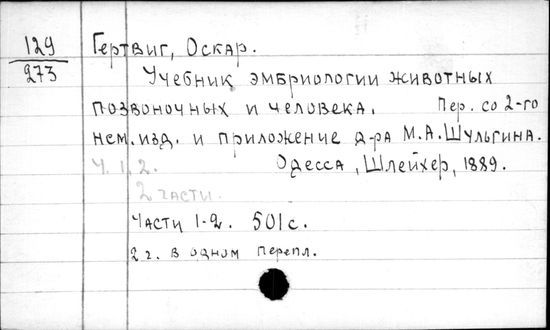 129
273
Гертвиг, Оскар.
Учебник эмбриологии животных
позвоночных и человека. Пер. со 2-го
нем. изд. и приложение д-ра М.А. Шульгина.
Ч. 1, 2. Одесса, Шлейхер, 1889.
2 части.
Части 1-2. 501 с.
2 г. в одном перепл.